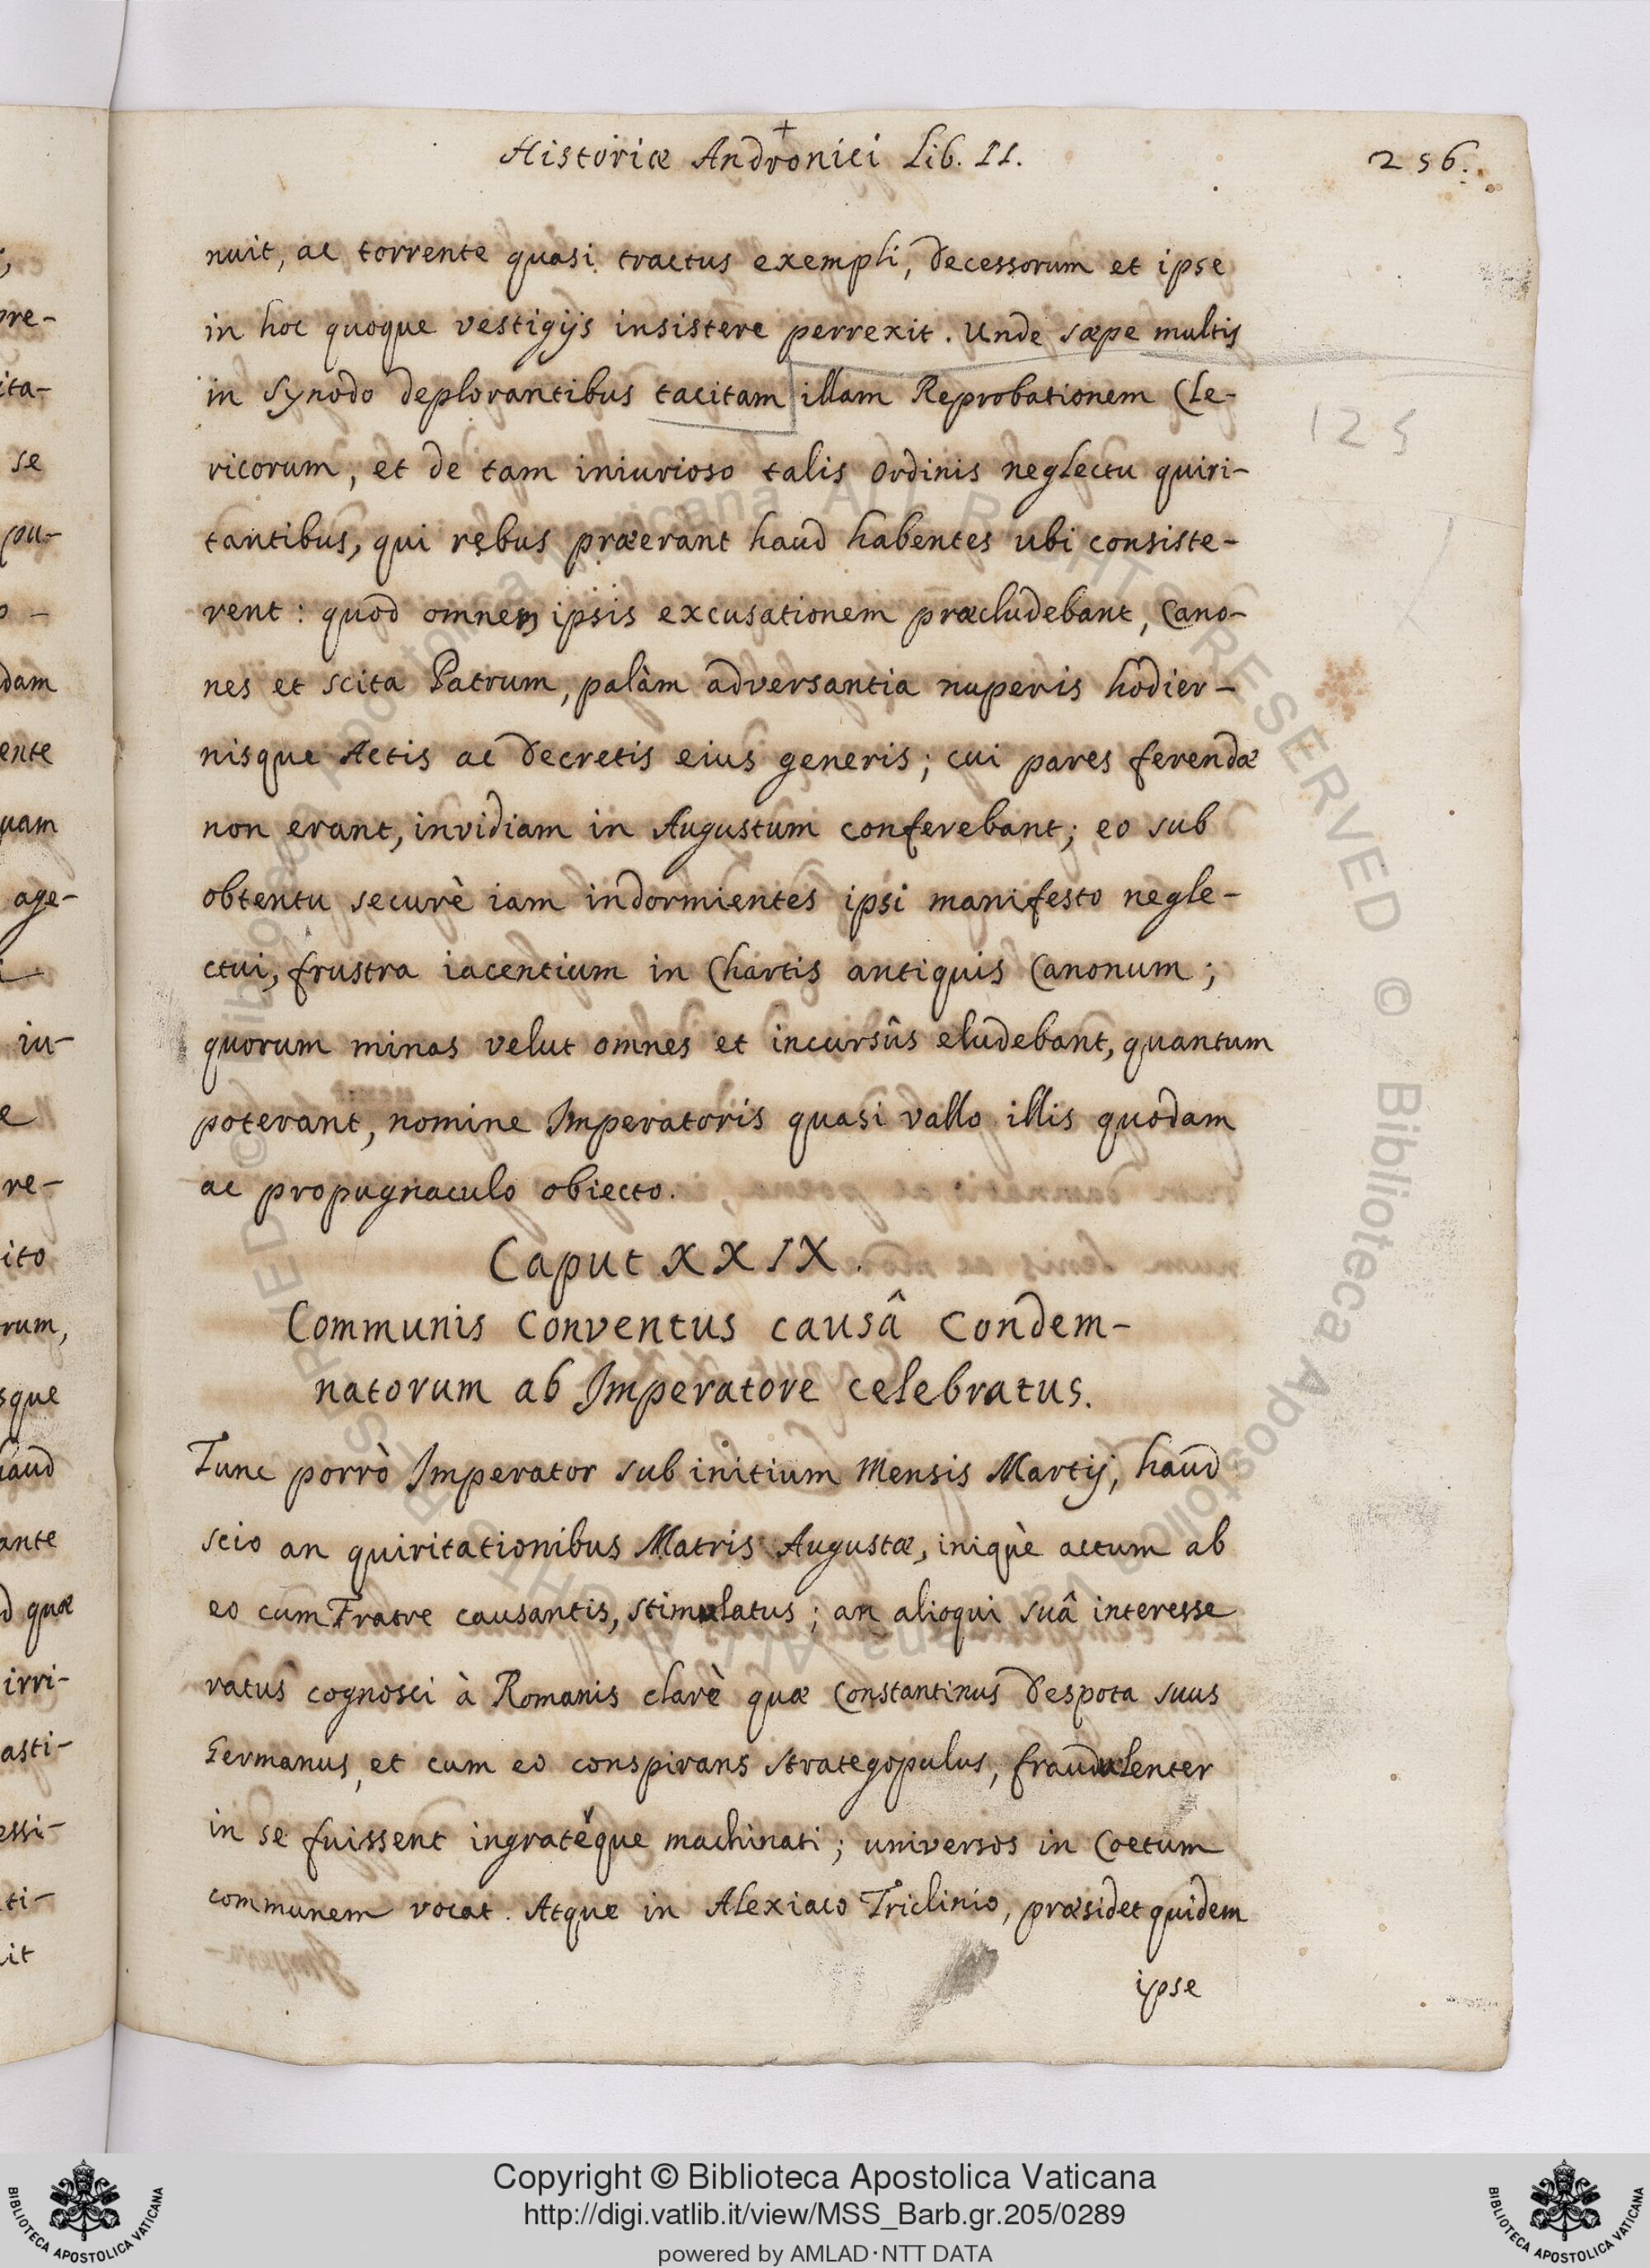 +
Historiæ Andronici Lib. II.
256.
nuit, ac torrente quasi tractus exempli, decessorum et ipse
in hoc quoque vestigijs insistere perrexit. Unde sæpe multis
in Synodo deplorantibus tacitam illam Reprobationem Cle-
125
ricorum, et de tam iniurioso talis Ordinis neglectu quiri-
tantibus, qui rebus præerant haud habentes ubi consiste-
rent: quod omnem ipsis excusationem præcludebant, Cano-
nes et scita Patrum, palàm adversantia nuperis hodier-
nisque Actis ac Decretis eius generis; cui pares ferendæ
non erant, invidiam in Augustum conferebant; eo sub
obtentu securè iam indormientes ipsi manifesto negle-
ctui, frustra iacentium in Chartis antiquis Canonum;
quorum minas velut omnes et incursûs eludebant, quantum
poterant, nomine Imperatoris quasi vallo illis quodam
ac propugnaculo obiecto.
Caput XXIX.
Communis Conventus causâ Condem-
natorum ab Imperatore celebratus.
Tunc porrò Imperator sub initium Mensis Martij, haud
scio an quiritationibus Matris Augustæ, iniquè actum ab
eo cum Fratre causantis, stimulatus; an alioqui suâ interesse
ratus cognosci à Romanis clarè quæ Constantinus Despota suus
Germanus, et cum eo conspirans Strategopulus, fraudulenter
in se fuissent ingratèque machinati; universos in Coetum
communem vocat. Atque in Alexiaco Triclinio, præsidet quidem
ipse
Copyright © Biblioteca Apostolica Vaticana
http://digi.vatlib.it/view/MSS_Barb.gr.205/0289
powered by AMLAD·NTT DATA
BIBLIOTECA APOSTOLICA VATICANA
BIBLIOTECA APOSTOLICA VATICANA